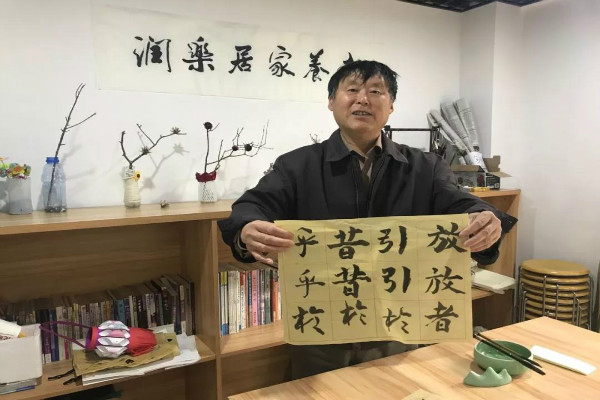 润樂居家養
放放者
引引於
昔昔於
乎乎於